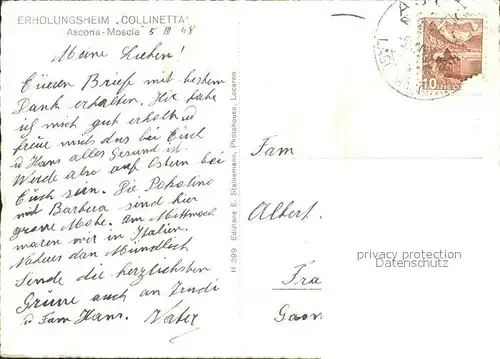 ERHOLUNGSHEIM „COLLINETTA"
Ascona-Moscia 5 III 48
Meine Lieben!
Eueren Brief mit bestem
Dank erhalten. Hir habe
ich mich gut erholt u
freue mich das bei Euch
u Hans alles Gesund ist.
Werde also auf Ostern bei
Euch sein. Die
mit Barbera sind hier
grosse Mode. am Mittwoch
waren wir in Italien.
Näheres dan Mündlich
Sende die herzlichsten
Grüsse auch an Trudi
u Fam Hans. Vater
H 399 Edizione E. Steinemann, Photohouse, Locarno
10 HELVETIA
Fam
Albert.
Fra
privacy protection
Datenschutz